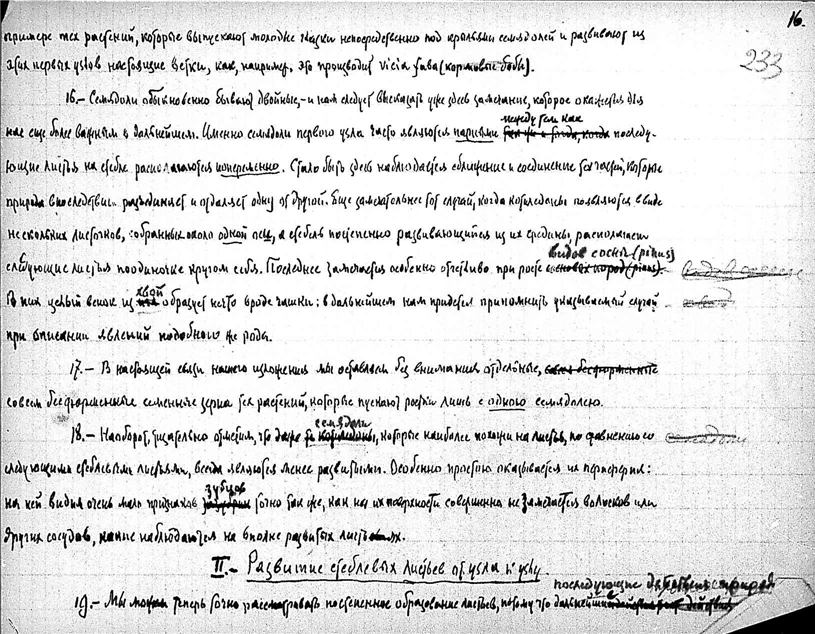 16.
233
примере тех растений, которые выпускают молодые глазки непосредственно под крыльями семядолей и развивают из
этих первых узлов настоящие ветки, как, например, это производит vicia faba (кормовые бобы).
16.– Семядоли обыкновенно бывают двойные, – и нам следует высказать уже здесь замечание, которое окажется для
между тем как
нас еще более важным в дальнейшем. Именно семядоли первого узла часто являются парными последу-
ющие листья на стебле располагаются попеременно. Стало быть здесь наблюдается сближение и соединение тех частей, которые
природа впоследствии разъединяет и отдаляет одну от другой. Еще замечательнее тот случай, когда котиледоны появляются в виде
нескольких листочков, собранных около одной оси, а стебель постепенно развивающийся из их средины, располагает
видов сосны (pinus)
следующие листья поодиночке кругом себя. Последнее замечается особенно отчетливо при росте
хвой
В них целый венок из образует нечто вроде чашки: в дальнейшем нам придется припомнить указываемый случай
при описании явлений подобного же рода.
17.– В настоящей связи нашего изложения мы оставляем без внимания отдельные,
совсем бесформенные семенные зерна тех растений, которые пускают ростки лишь с одною семядолею.
семядоли
18.– Наоборот, тщательно отметим, что даже, которые наиболее похожи на листья, по сравнению со
следующими стеблевыми листьями, всегда являются менее развитыми. Особенно простою оказывается их периферия:
зубцов
на ней видны очень мало признаков точно так же, как на их поверхности совершенно не замечается волосков или
других сосудов, какие наблюдаются на вполне развитых листьях.
II.– Развитие стеблевых листьев от узла к узлу
последующие действия природы
19.– Мы можем теперь точно рассматривать постепенное образование листьев, потому что